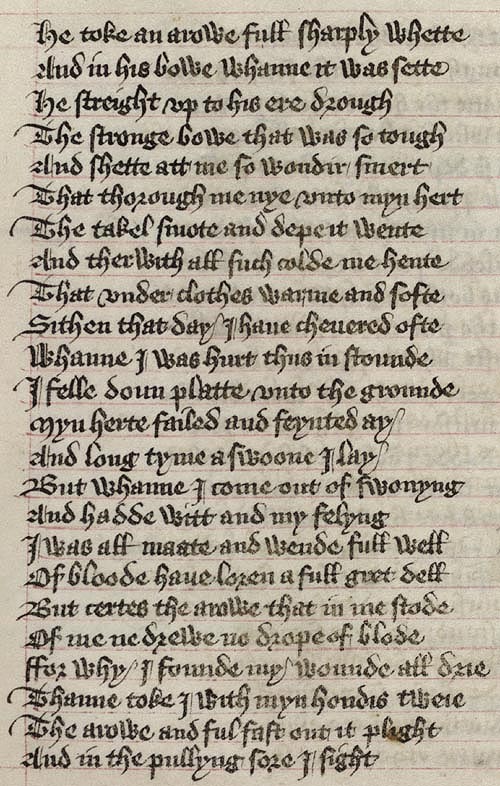 He toke an arowe full sharply whette
And in his bowe whanne it was sette
He streight vp to his ere drough
The stronge bowe that was so tough
And shette att me so wondir smert
That thorough me nye vnto myn hert
The takel smote and depe it wente
And therwith all such colde me hente
That vnder clothes warme and softe
Sithen that day I haue cheuered ofte
Whanne I was hurt thus in stounde
I felle doun platte vnto the grounde
Myn herte failed and feynted ay
And long tyme a swoone I lay
But whanne I come out of swonyng
And hadde witt and my felyng
I was all maate and wende full well
Of bloode haue loren a full gret dell
But certes the arowe that in me stode
Of me ne drewe no drope of blode
ffor why I founde my wounde all drie
Thanne toke I with myn hondis tweie
The arowe and ful fast out it plight
And in the pullyng sore I sight